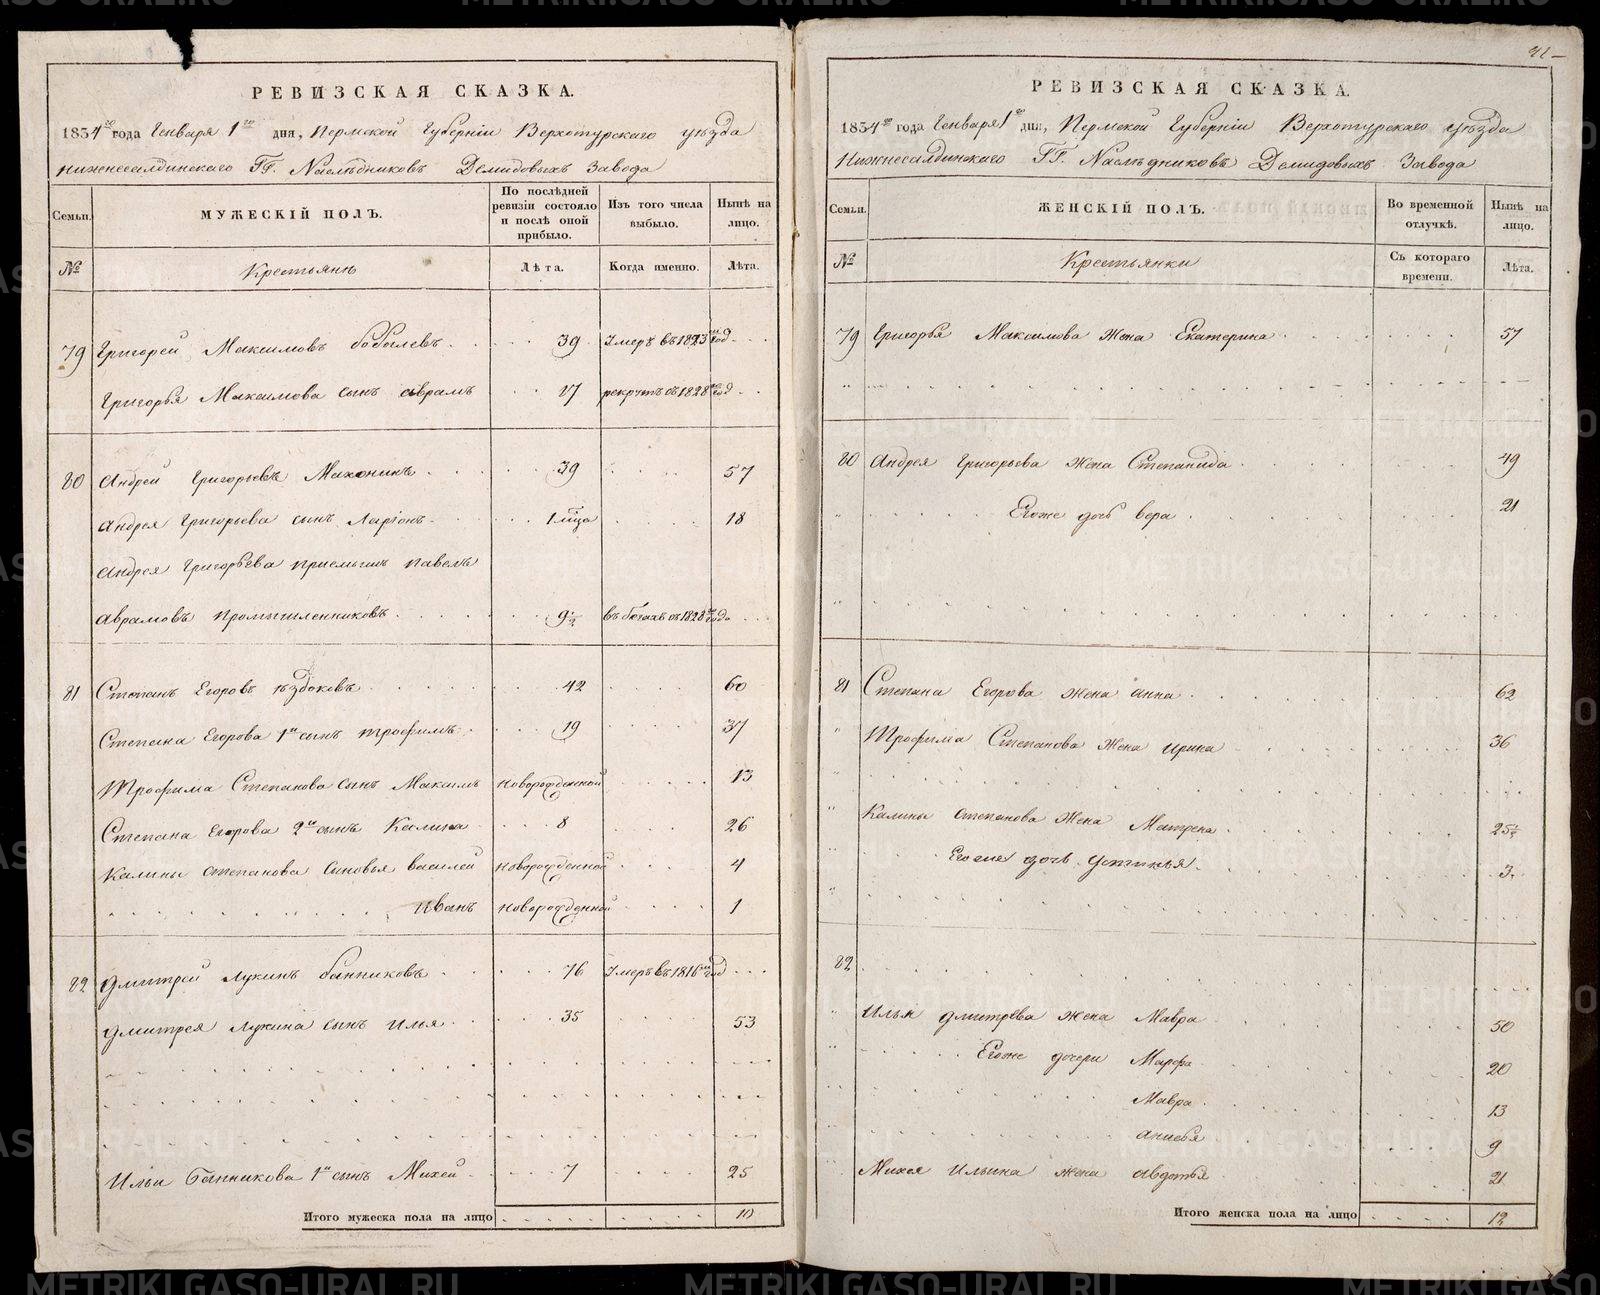 РЕВИЗСКАЯ СКАЗКА.
1834го года Генваря 1го дня, Пермской Губерніи Верхотурскаго уѣзда
Нижнесалдинскаго ГГ. Наслѣдниковъ Демидовыхъ Завода
Семьи. МУЖЕСКІЙ ПОЛЪ. По послѣдней ревизіи состояло и послѣ оной прибыло. Изъ того числа выбыло. Нынѣ на лицо.
№ Крестьяне Лѣта. Когда именно. Лѣта.
79 Григорей Максимовъ Бобылевъ 39 Умеръ въ 1823м год
Григорья Максимова сынъ Аврамъ 17 рекрутъ съ 1828го год
80 Андрей Григорьевъ Махонинъ 39 57
Андрея Григорьева сынъ Ларіонъ 1 мца 18
Андрея Григорьева приемышъ Павелъ
Аврамовъ Промышленниковъ 9½ въ бегахъ съ 1828го года
81 Степанъ Егоровъ ѣздоковъ 42 60
Степана Егорова 1й сынъ Трофимъ 19 37
Трофима Степанова сынъ Максимъ новорожденной 13
Степана Егорова 2й сынъ Калина 8 26
Калины Степанова сыновья Василей новорожденной 4
Иванъ новорожденной 1
82 Дмитрей Лукинъ Банниковъ 76 Умеръ въ 1816м год
Дмитрея Лукина сынъ Илья 35 53
Ильи Банникова 1й сынъ Михей 7 25
Итого мужеска пола на лицо 10
41
РЕВИЗСКАЯ СКАЗКА.
1834го года Генваря 1го дня, Пермской Губерніи Верхотурскаго уѣзда
Нижнесалдинскаго ГГ. Наслѣдниковъ Демидовыхъ Завода
Семьи. ЖЕНСКІЙ ПОЛЪ. Во временной отлучкѣ. Нынѣ на лицо.
№ Крестьянки Съ котораго времени. Лѣта.
79 Григорья Максимова жена Екатерина 57
80 Андрея Григорьева жена Степанида 49
Егоже дочь Вера 21
81 Степана Егорова жена Анна 62
Трофима Степанова жена Ирина 36
Калины Степанова жена Матрена 25½
Егоже дочь Устинья 3
82
Ильи Дмитрева жена Мавра 50
Егоже дочери Марфа 20
Мавра 13
Анисья 9
Михея Ильина жена Авдотья 21
Итого женска пола на лицо 12
METRIKI.GASO-URAL.RU